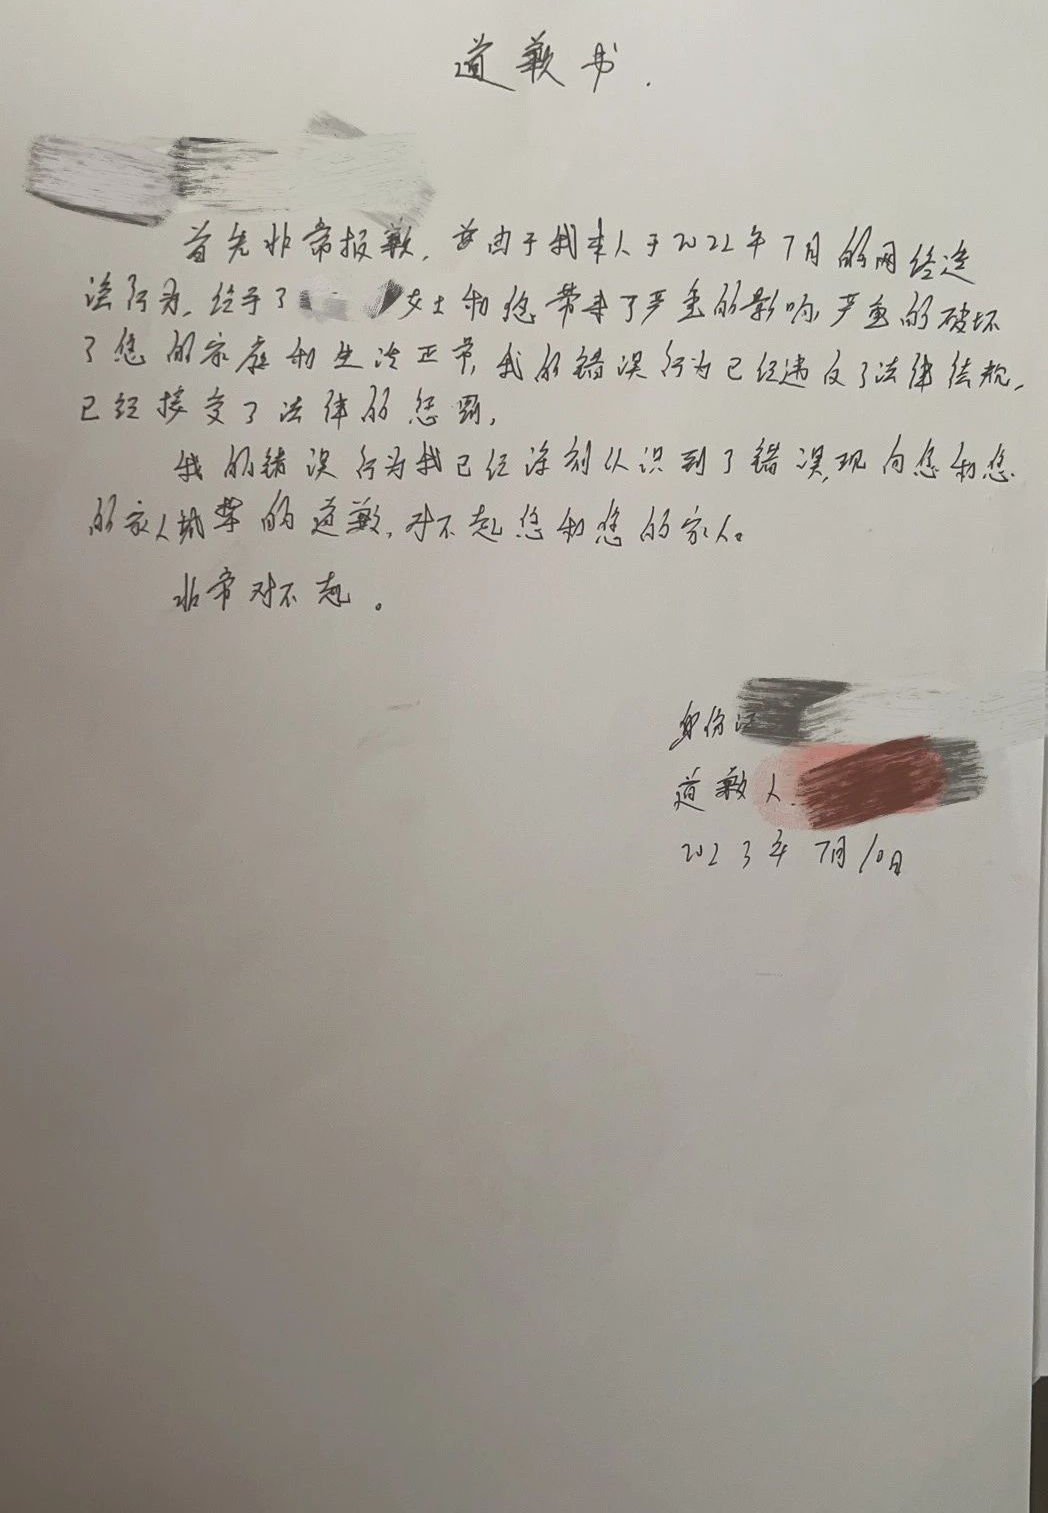 道歉书.
首先非常报歉, 由于我本人于2022年7月的网络违
法行为, 给予了 女士和您带来了严重的影响, 严重的破坏
了您的家庭和生活正常, 我的错误行为已经违反了法律法规,
已经接受了法律的惩罚,
我的错误行为我已经深刻认识到了错误, 现向您和您
的家人诚挚的道歉, 对不起您和您的家人。
非常对不起。
身份证
道歉人.
2023年7月10日